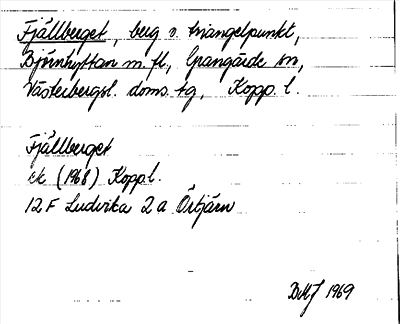 Fjällberget, berg o. triangelpunkt,
Björnhyttan m. fl., Grangärde sn,
Västerbergsl. doms. tg, Kopp. l.
Fjällberget
ek (1968) Kopp l.
12 F Ludvika 2 a Örtjärn
BMJ 1969